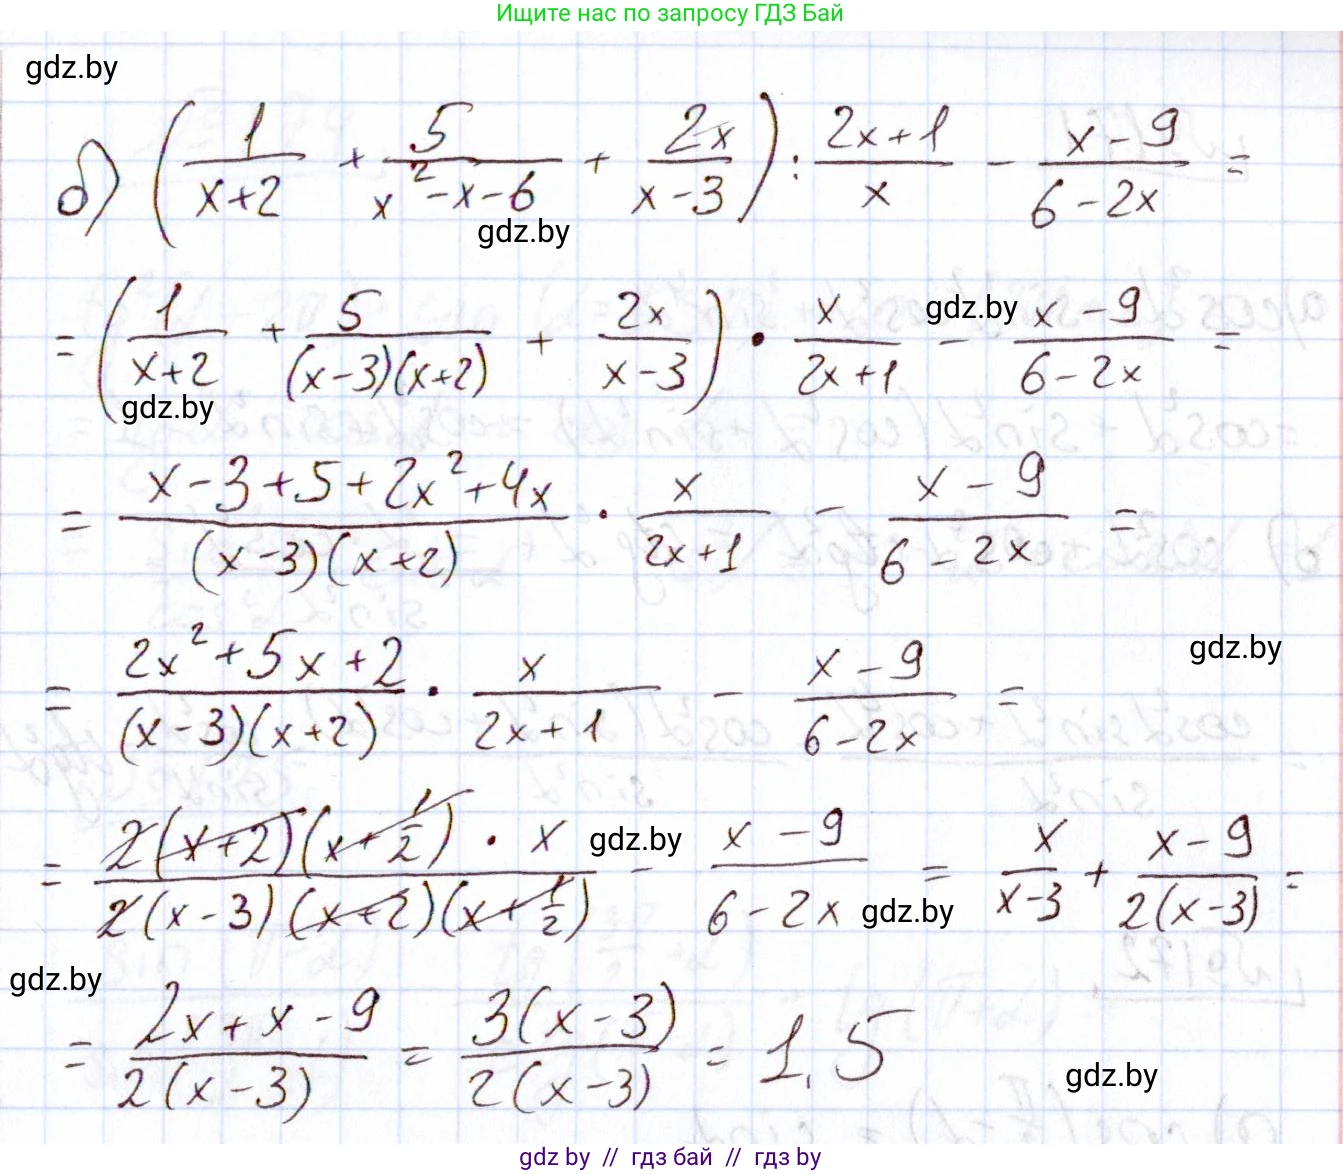 Ищите нас по запросу ГДЗ Бай
gdz.by
б) (1/(x+2) + 5/(x²-x-6) + 2x/(x-3)) : (2x+1)/x - (x-9)/(6-2x) =
gdz.by
= (1/(x+2) + 5/((x-3)(x+2)) + 2x/(x-3)) · x/(2x+1) - (x-9)/(6-2x) =
gdz.by
gdz.by
= (x-3+5+2x²+4x)/((x-3)(x+2)) · x/(2x+1) - (x-9)/(6-2x) =
= (2x²+5x+2)/((x-3)(x+2)) · x/(2x+1) - (x-9)/(6-2x) =
gdz.by
= (2(x+2)(x+1/2) · x)/(2(x-3)(x+2)(x+1/2)) - (x-9)/(6-2x) = x/(x-3) + (x-9)/(2(x-3)) =
gdz.by
gdz.by
gdz.by
= (2x+x-9)/(2(x-3)) = (3(x-3))/(2(x-3)) = 1,5
gdz.by
gdz by // гдз бай // гдз by